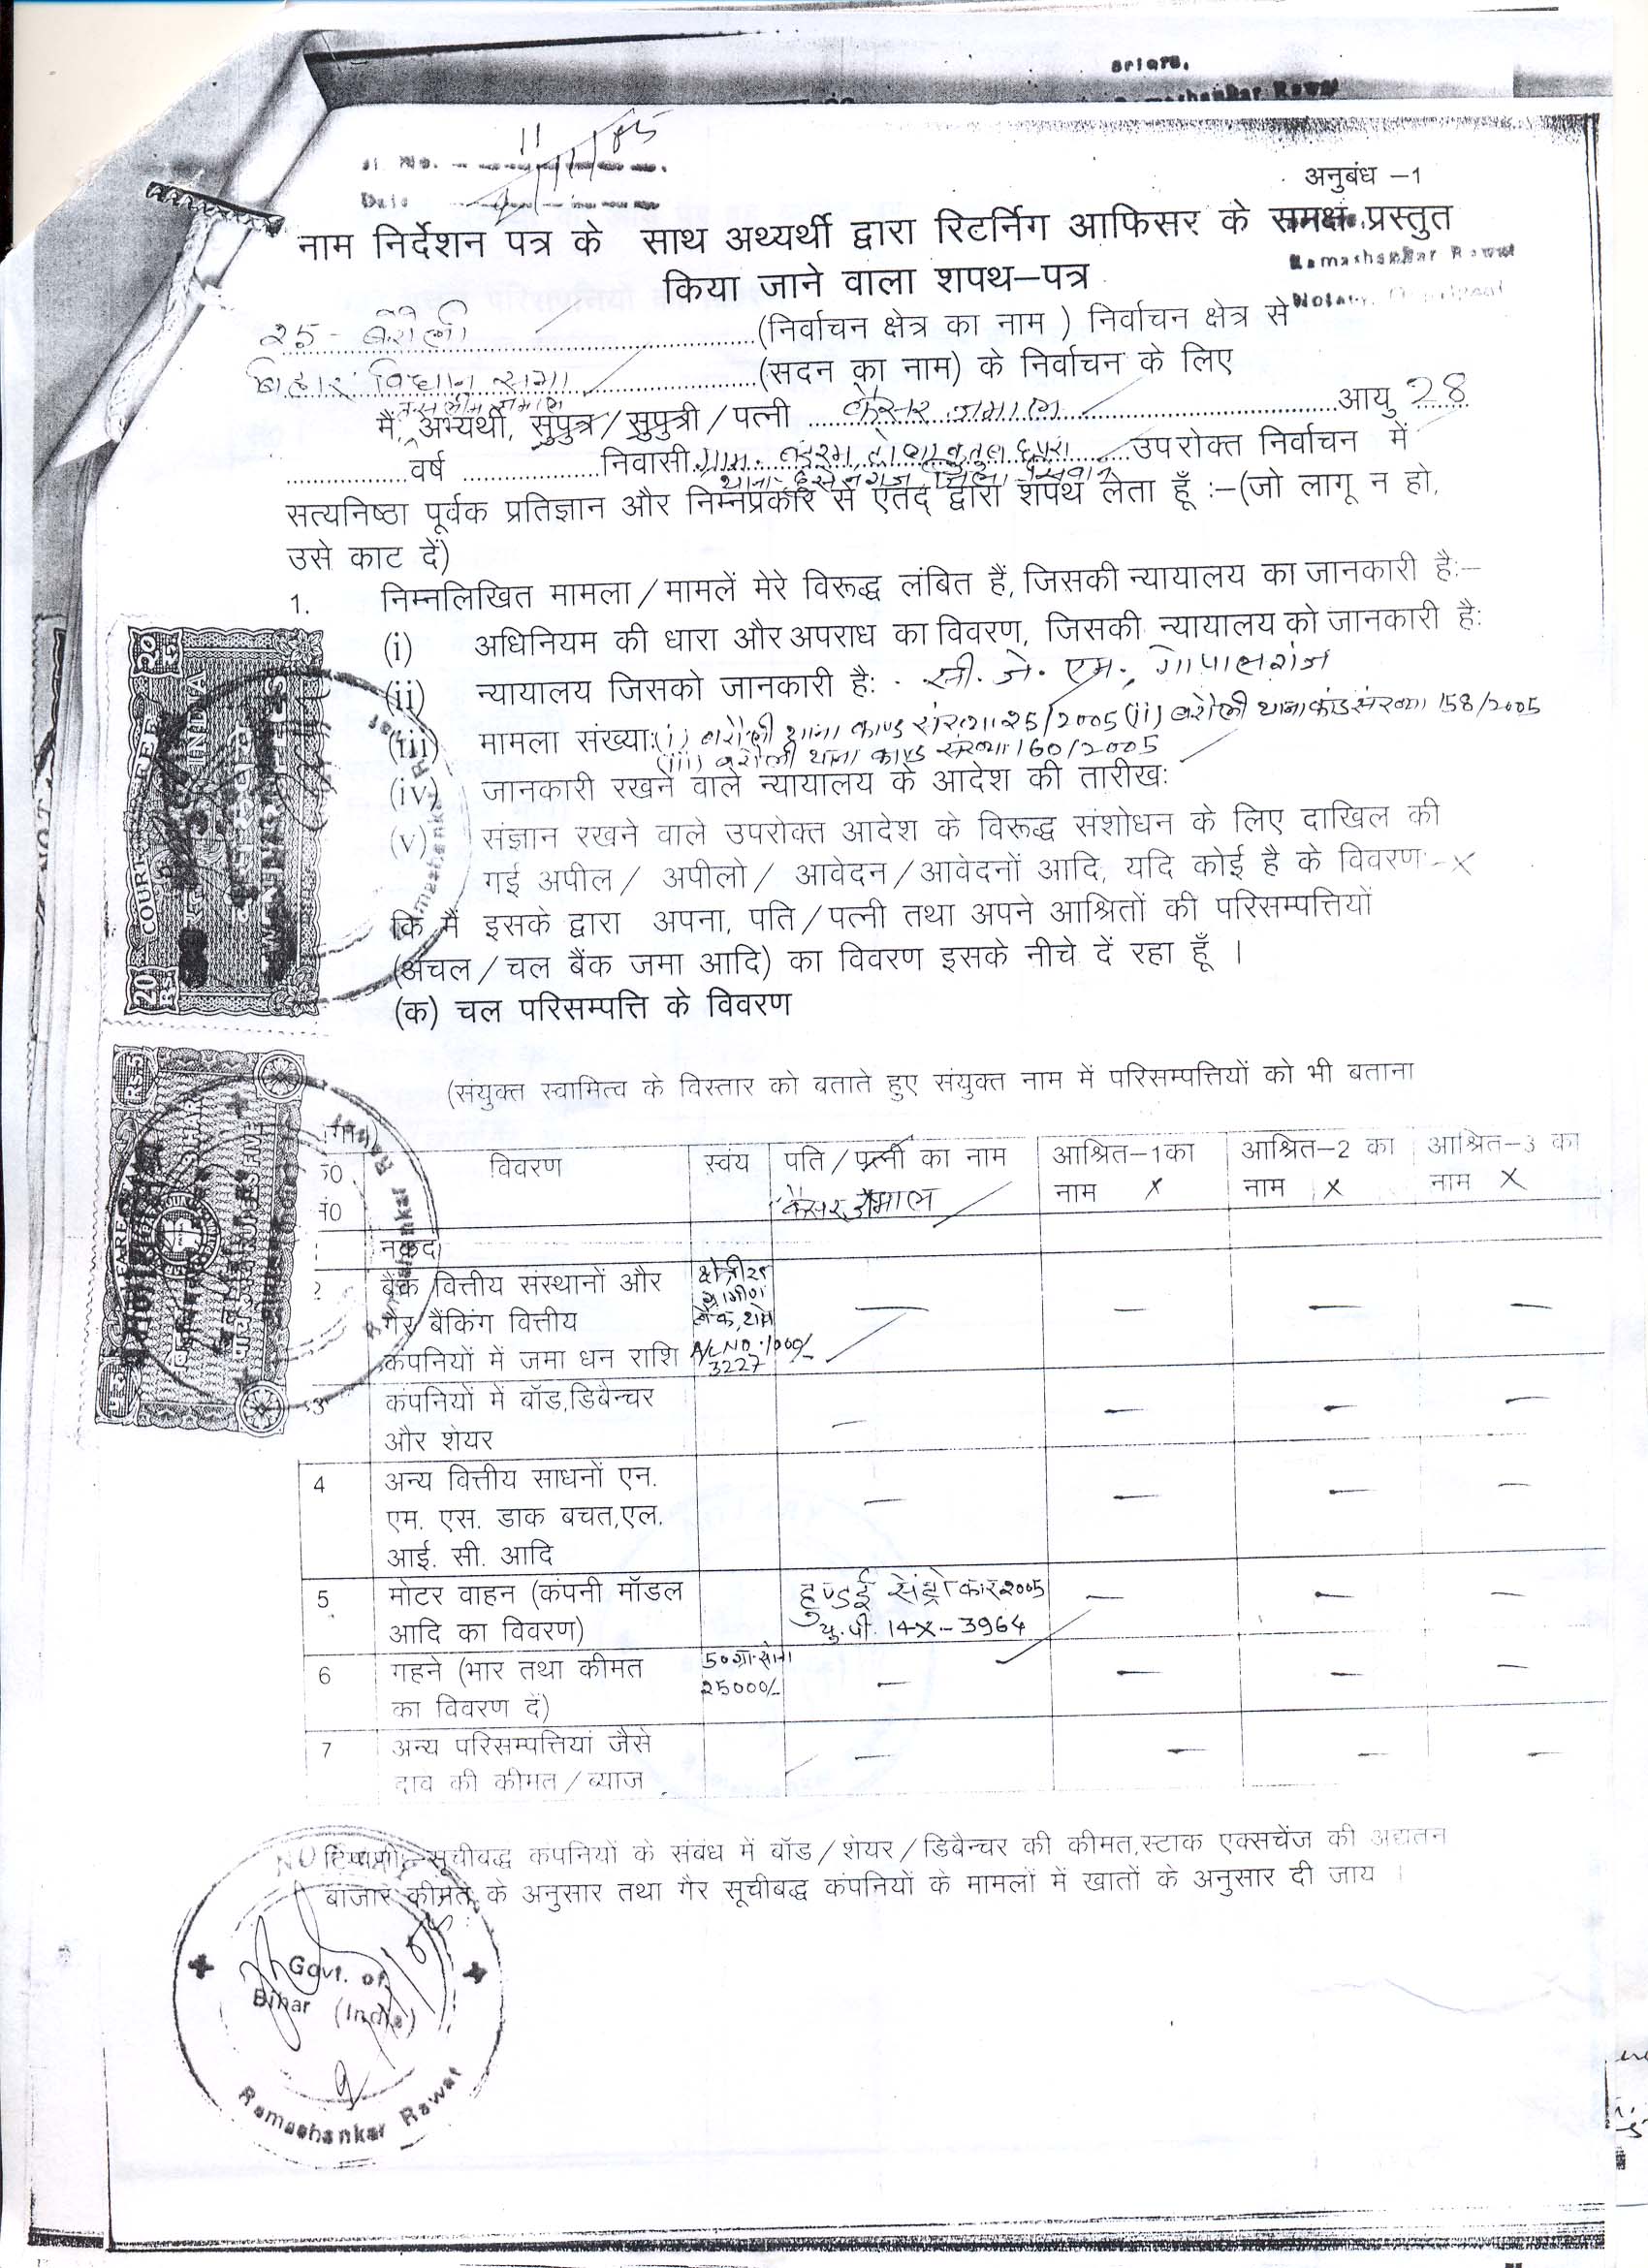 Sl No. 11
Date
अनुबंध -1
नाम निर्देशन पत्र के साथ अथ्यर्थी द्वारा रिटर्निग आफिसर के समक्ष प्रस्तुत
किया जाने वाला शपथ-पत्र
Ramashankar Rawat
25 - बरौली (निर्वाचन क्षेत्र का नाम ) निर्वाचन क्षेत्र से
बिहार विधान सभा (सदन का नाम) के निर्वाचन के लिए
तसलीम जमाल
मैं, अभ्यर्थी, सुपुत्र/सुपुत्री/पत्नी कैसर जमाल आयु 28
वर्ष निवासी ग्राम- उपरोक्त निर्वाचन में
सत्यनिष्ठा पूर्वक प्रतिज्ञान और निम्नप्रकार से एतद् द्वारा शपथ लेता हूँ :-(जो लागू न हो,
उसे काट दें)
1. निम्नलिखित मामला/मामलें मेरे विरूद्ध लंबित हैं, जिसकी न्यायालय का जानकारी है:-
(i) अधिनियम की धारा और अपराध का विवरण, जिसकी न्यायालय को जानकारी है:
(ii) न्यायालय जिसको जानकारी है: सी. जे. एम., गोपालगंज
(iii) मामला संख्या: (i) बरौली थाना काण्ड संख्या 25/2005 (ii) बरौली थाना कांड संख्या 158/2005
(iii) बरौली थाना काण्ड संख्या 160/2005
(iv) जानकारी रखने वाले न्यायालय के आदेश की तारीख:
(v) संज्ञान रखने वाले उपरोक्त आदेश के विरूद्ध संशोधन के लिए दाखिल की
गई अपील/ अपीलो/ आवेदन/आवेदनों आदि, यदि कोई है के विवरण:- X
कि मैं इसके द्वारा अपना, पति/पत्नी तथा अपने आश्रितों की परिसम्पत्तियों
(अचल/चल बैंक जमा आदि) का विवरण इसके नीचे दें रहा हूँ ।
(क) चल परिसम्पत्ति के विवरण
(संयुक्त स्वामित्व के विस्तार को बताते हुए संयुक्त नाम में परिसम्पत्तियों को भी बताना
विवरण स्वंय पति/पत्नी का नाम आश्रित-1का आश्रित-2 का आश्रित-3 का
कैसर जमाल नाम X नाम X नाम X
नकद
2 बैंक वित्तीय संस्थानों और क्षेत्रीय — — — —
गैर बैंकिंग वित्तीय ग्रामीण बैंक,
कंपनियों में जमा धन राशि A/C NO. 3227 1000/-
3 कंपनियों में बॉड,डिबैन्चर — — — —
और शेयर
4 अन्य वित्तीय साधनों एन. — — — —
एम. एस. डाक बचत,एल.
आई. सी. आदि
5 मोटर वाहन (कंपनी मॉडल हुण्डई सेंट्रो कार 2005 — — —
आदि का विवरण) यु.पी. 14X-3964
6 गहने (भार तथा कीमत 50ग्रा. सोना — — — —
का विवरण दें) 25000/-
7 अन्य परिसम्पत्तियां जैसे — — — —
दाव की कीमत/ब्याज
टिप्पणी:- सूचीबद्ध कंपनियों के संबंध में बॉड/शेयर/डिबैन्चर की कीमत,स्टाक एक्सचेंज की अद्यतन
बाजार कीमत के अनुसार तथा गैर सूचीबद्ध कंपनियों के मामलों में खातों के अनुसार दी जाय ।
Govt. of
Bihar (India)
Ramashankar Rawat
20 Rs.
COURT FEE
INDIA
बीस रुपये
TWENTY RUPEES
Rs.5